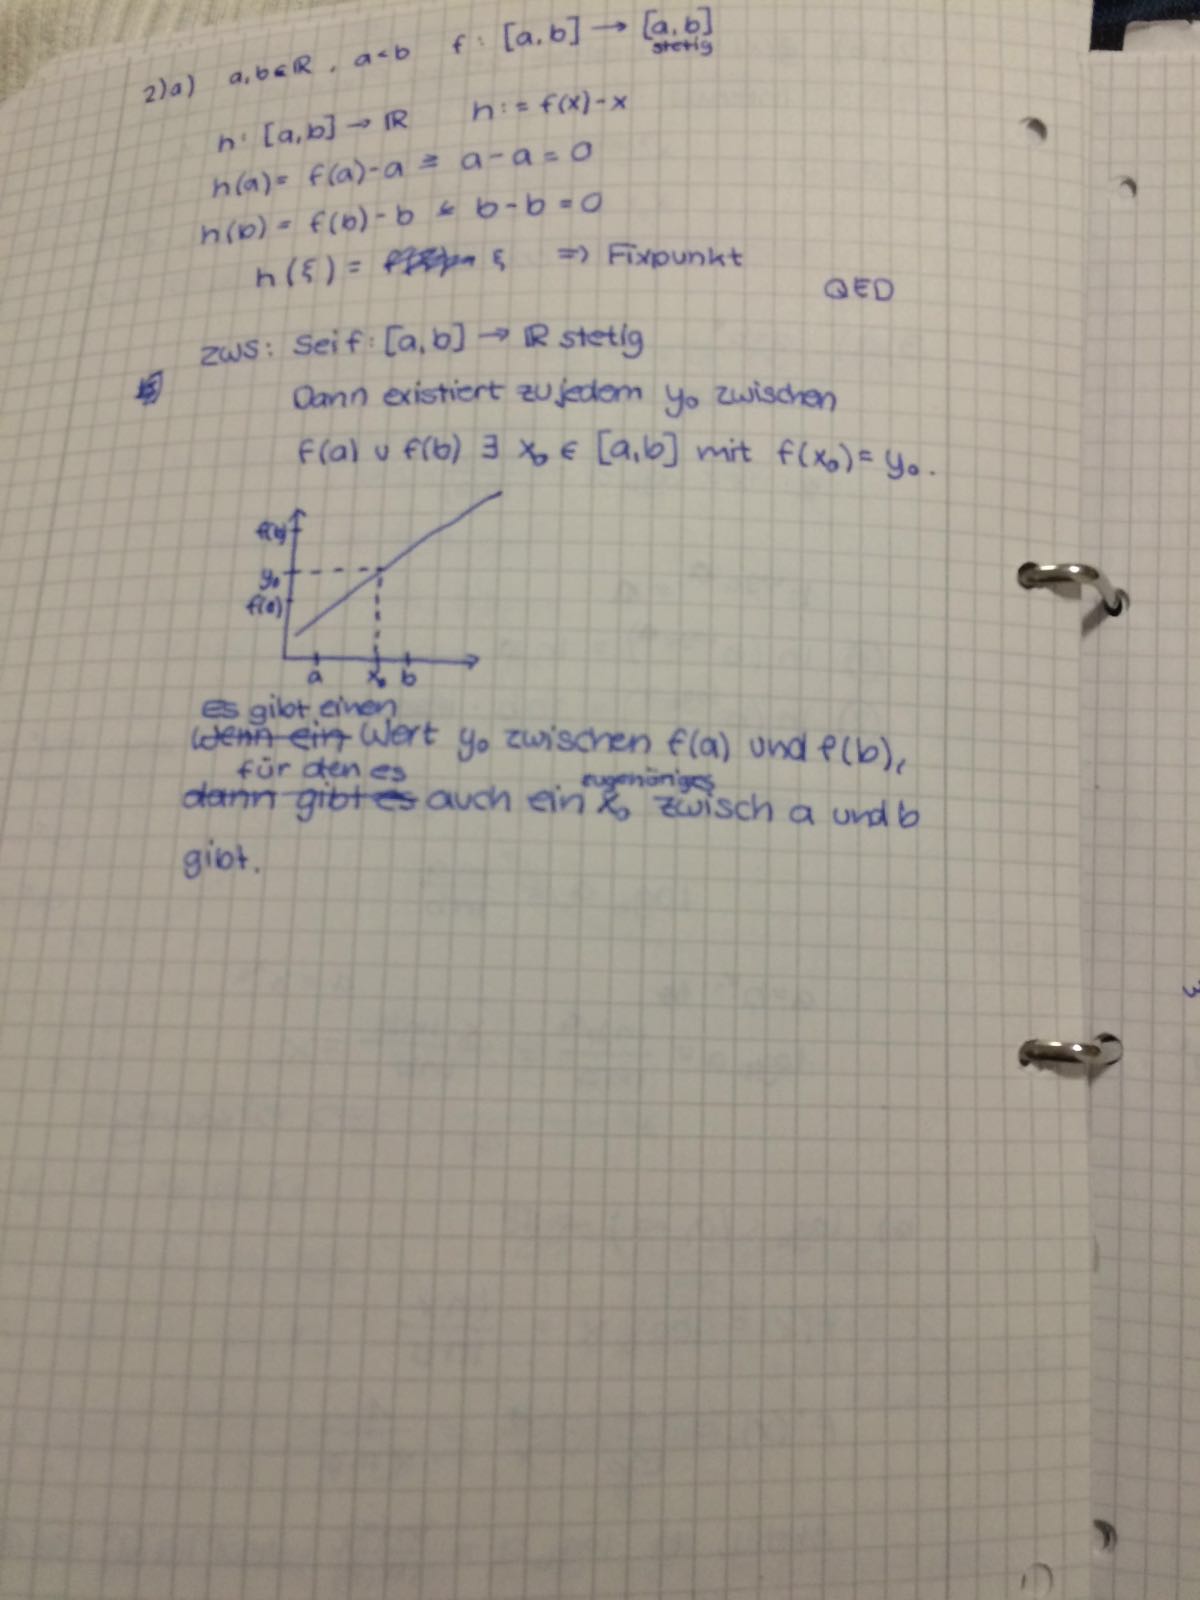 2)a) a,b∈ℝ, a<b f: [a,b] → [a,b]
stetig
h: [a,b] → ℝ h:= f(x)-x
h(a)= f(a)-a ≥ a-a=0
h(b)= f(b)-b ≤ b-b=0
h(ξ)= ξ => Fixpunkt
QED
ZWS: Sei f: [a,b] → ℝ stetig
Dann existiert zu jedem y₀ zwischen
f(a) u f(b) ∃ x₀ ∈ [a,b] mit f(x₀)= y₀.
f(b)
y₀
f(a)
a x₀ b
es gibt einen
wenn ein Wert y₀ zwischen f(a) und f(b),
für den es zugehöriges
dann gibt es auch ein x₀ zwisch a und b
gibt.